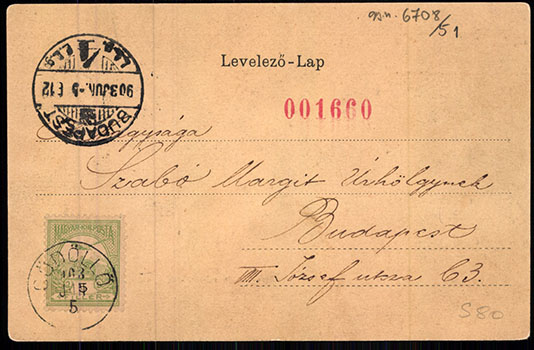 gy.n. 6708
/51
Levelező-Lap
001660
BUDAPEST
903 JUN. -5 E 12
Nagysága
Szabó Margit Úrhölgynek
Budapest
VIII. József utcza 63.
MAGYAR KIR. POSTA
GÖDÖLLŐ
903
JUN
5
FILLÉR
S80